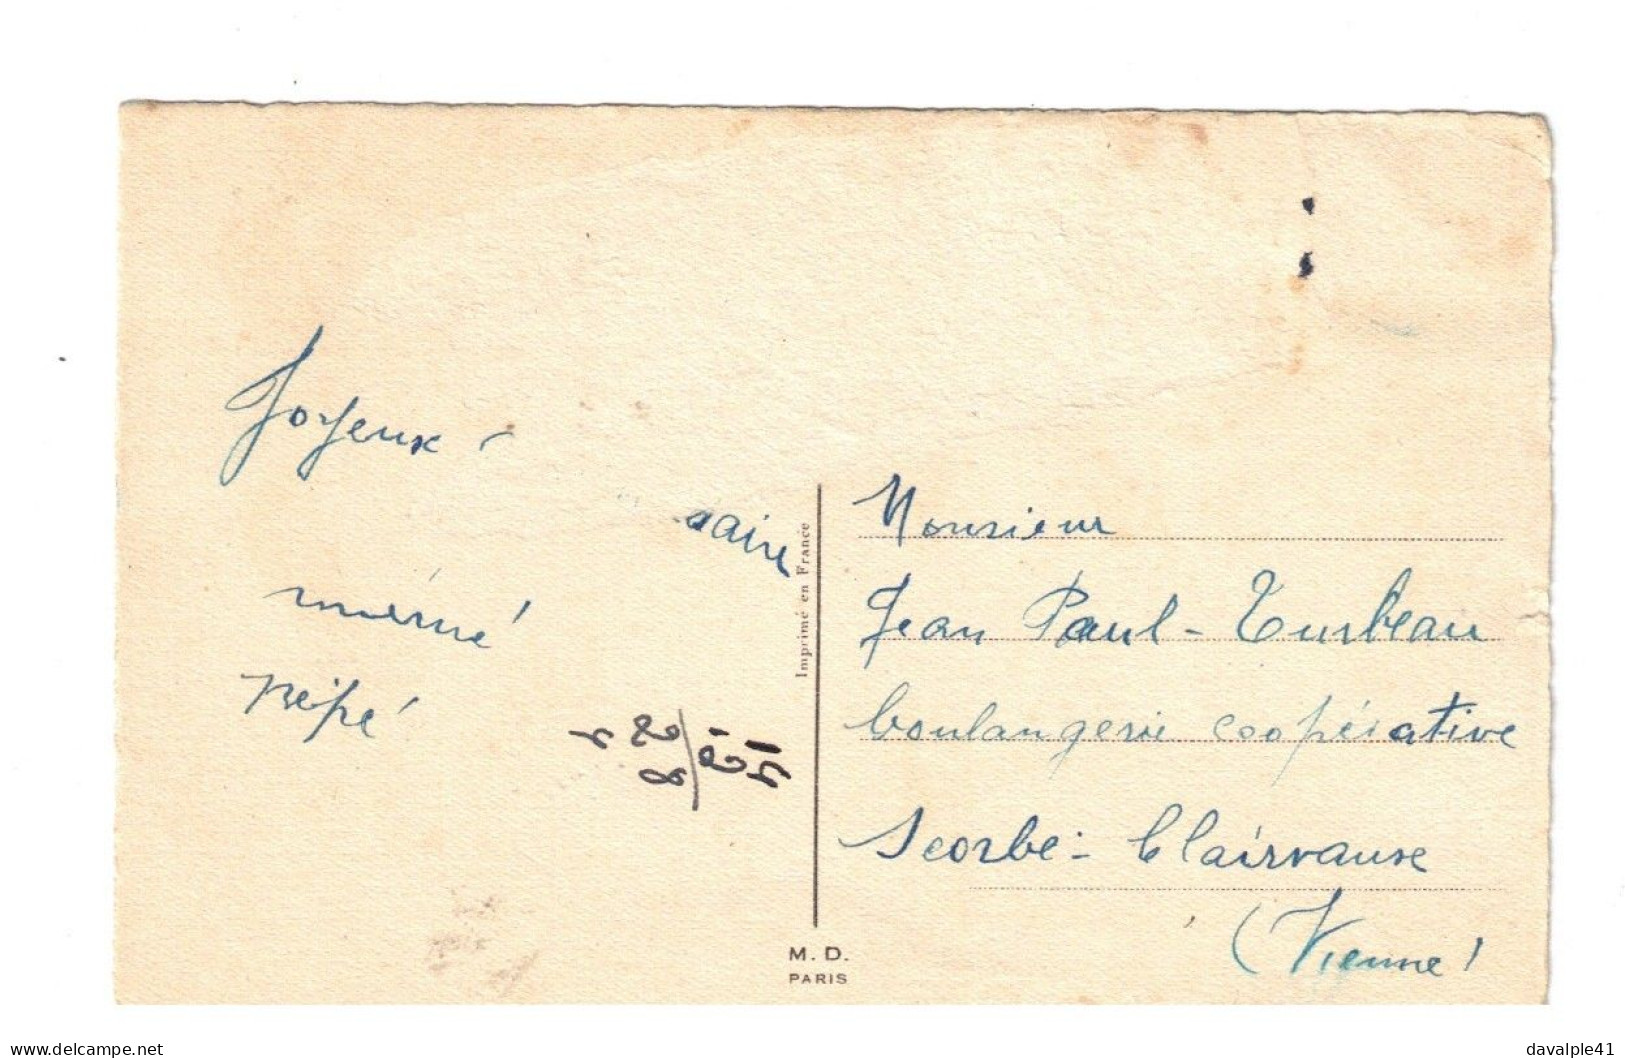 Joyeux -
saire
mémé
pépé
Imprimé en France
M. D.
PARIS
Monsieur
Jean Paul - Turbeau
boulangerie coopérative
Scorbé - Clairvaux
(Vienne)
www.delcampe.net
davalple41